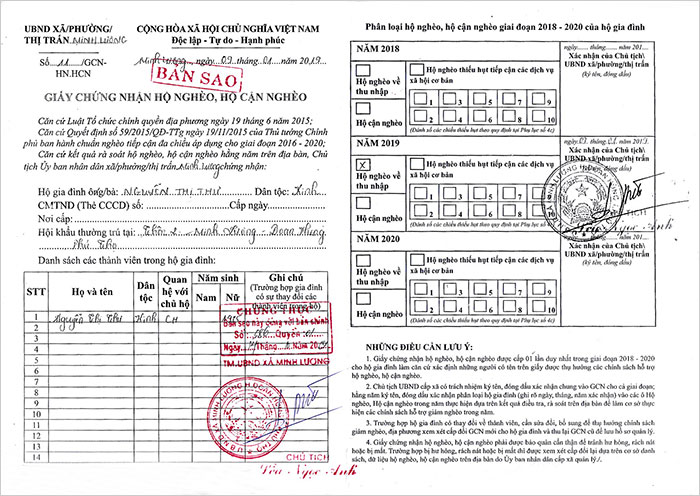 UBND XÃ/PHƯỜNG/
THỊ TRẤN MINH LƯƠNG
Số 11 /GCN-
HN.HCN
CỘNG HÒA XÃ HỘI CHỦ NGHĨA VIỆT NAM
Độc lập - Tự do - Hạnh phúc
Minh Lương, ngày 09 tháng 01 năm 2019
BẢN SAO
GIẤY CHỨNG NHẬN HỘ NGHÈO, HỘ CẬN NGHÈO
Căn cứ Luật Tổ chức chính quyền địa phương ngày 19 tháng 6 năm 2015;
Căn cứ Quyết định số 59/2015/QĐ-TTg ngày 19/11/2015 của Thủ tướng Chính
phủ ban hành chuẩn nghèo tiếp cận đa chiều áp dụng cho giai đoạn 2016 - 2020;
Căn cứ kết quả rà soát hộ nghèo, hộ cận nghèo hằng năm trên địa bàn, Chủ
tịch Ủy ban nhân dân xã/phường/thị trấn Minh Lương chứng nhận:
Hộ gia đình ông/bà: NGUYỄN THỊ THU Dân tộc: Kinh
CMTND (Thẻ CCCD) số: Cấp ngày
Nơi cấp:
Hộ khẩu thường trú tại: Thôn 2 - Minh Lương - Đoan Hùng
Phú Thọ
Danh sách các thành viên trong hộ gia đình:
STT Họ và tên Dân tộc Quan hệ với chủ hộ Năm sinh Nam Nữ Ghi chú
(Trường hợp gia đình có sự thay đổi các thành viên trong hộ)
1 Nguyễn Thị Thu Kinh CH
2
3
4
5
6
7
8
9
10
11
12
13
14
CHỨNG THỰC
Bản sao này đúng với bản chính
Số Quyển
Ngày Tháng
TM.UBND XÃ MINH LƯƠNG
CHỦ TỊCH
Trần Ngọc Anh
Phân loại hộ nghèo, hộ cận nghèo giai đoạn 2018 - 2020 của hộ gia đình
NĂM 2018
Hộ nghèo về thu nhập
Hộ cận nghèo
Hộ nghèo thiếu hụt tiếp cận các dịch vụ xã hội cơ bản
1 3 5 7 9
2 4 6 8 10
(Đánh số các chiều thiếu hụt theo quy định tại Phụ lục số 4c)
ngày...... tháng...... năm 201...
Xác nhận của Chủ tịch
UBND xã/phường/thị trấn
(ký tên, đóng dấu)
NĂM 2019
X
Hộ nghèo về thu nhập
Hộ cận nghèo
Hộ nghèo thiếu hụt tiếp cận các dịch vụ xã hội cơ bản
1 3 5 7 9
2 4 6 8 10
(Đánh số các chiều thiếu hụt theo quy định tại Phụ lục số 4c)
Xác nhận của Chủ tịch
UBND xã/phường/thị trấn
CHỦ TỊCH
Trần Ngọc Anh
NĂM 2020
Hộ nghèo về thu nhập
Hộ cận nghèo
Hộ nghèo thiếu hụt tiếp cận các dịch vụ xã hội cơ bản
1 3 5 7 9
2 4 6 8 10
(Đánh số các chiều thiếu hụt theo quy định tại Phụ lục số 4c)
Xác nhận của Chủ tịch
UBND xã/phường/thị trấn
(ký tên, đóng dấu)
NHỮNG ĐIỀU CẦN LƯU Ý:
1. Giấy chứng nhận hộ nghèo, hộ cận nghèo được cấp 01 lần duy nhất trong giai đoạn 2018 - 2020
cho hộ gia đình làm căn cứ xác định những người có tên trên giấy được thụ hưởng các chính sách hỗ trợ
hộ nghèo, hộ cận nghèo.
2. Chủ tịch UBND cấp xã có trách nhiệm ký tên, đóng dấu xác nhận chung vào GCN cho cả giai đoạn;
hằng năm ký tên, đóng dấu xác nhận phân loại hộ gia đình (ghi rõ ngày, tháng, năm xác nhận) vào các ô Hộ
nghèo, Hộ cận nghèo trong năm thực hiện dựa trên kết quả điều tra, rà soát trên địa bàn để làm cơ sở thực
hiện các chính sách hỗ trợ giảm nghèo trong năm.
3. Trường hợp hộ gia đình có thay đổi về thành viên, cần sửa đổi, bổ sung để thụ hưởng chính sách
giảm nghèo, địa phương xem xét cấp đổi GCN mới cho hộ gia đình và thu lại GCN cũ để lưu hồ sơ quản lý.
4. Giấy chứng nhận hộ nghèo, hộ cận nghèo phải được bảo quản cẩn thận để tránh hư hỏng, rách nát
hoặc bị mất. Trường hợp bị hư hỏng, rách nát hoặc bị mất thì được xem xét cấp đổi lại dựa trên cơ sở danh
sách, dữ liệu hộ nghèo, hộ cận nghèo trên địa bàn do Ủy ban nhân dân cấp xã quản lý./.